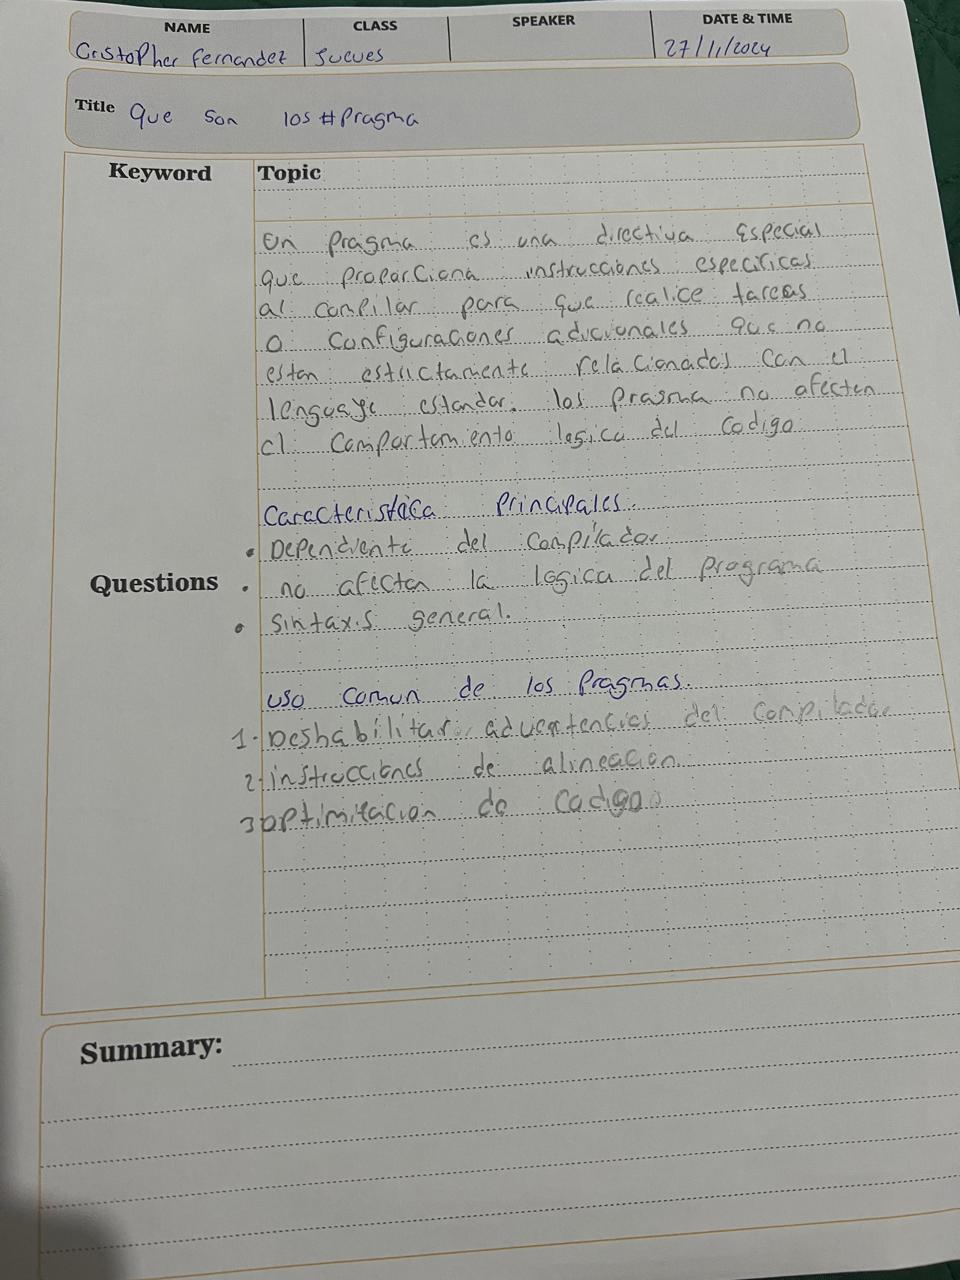 NAME CLASS SPEAKER DATE & TIME
Cristopher Fernandez Jueves 27/11/2024
Title Que son los #Pragma
Keyword Topic
Un Pragma es una directiva Especial
que proporciona instrucciones especificas
al conpilar para que realice tareas
o configuraciones adicionales que no
estan estrictamente relacionados con el
lenguaje estandar. los pragma no afecten
el Comportamiento logico del codigo
Caracteristica Principales.
• Dependiente del Compilador
Questions • no afectan la logica del programa
• Sintaxis general.
uso comun de los Pragmas.
1. Deshabilitar advertencies del compilador
2. instrucciones de alineacion
3 optimitacion de Codigo
Summary: